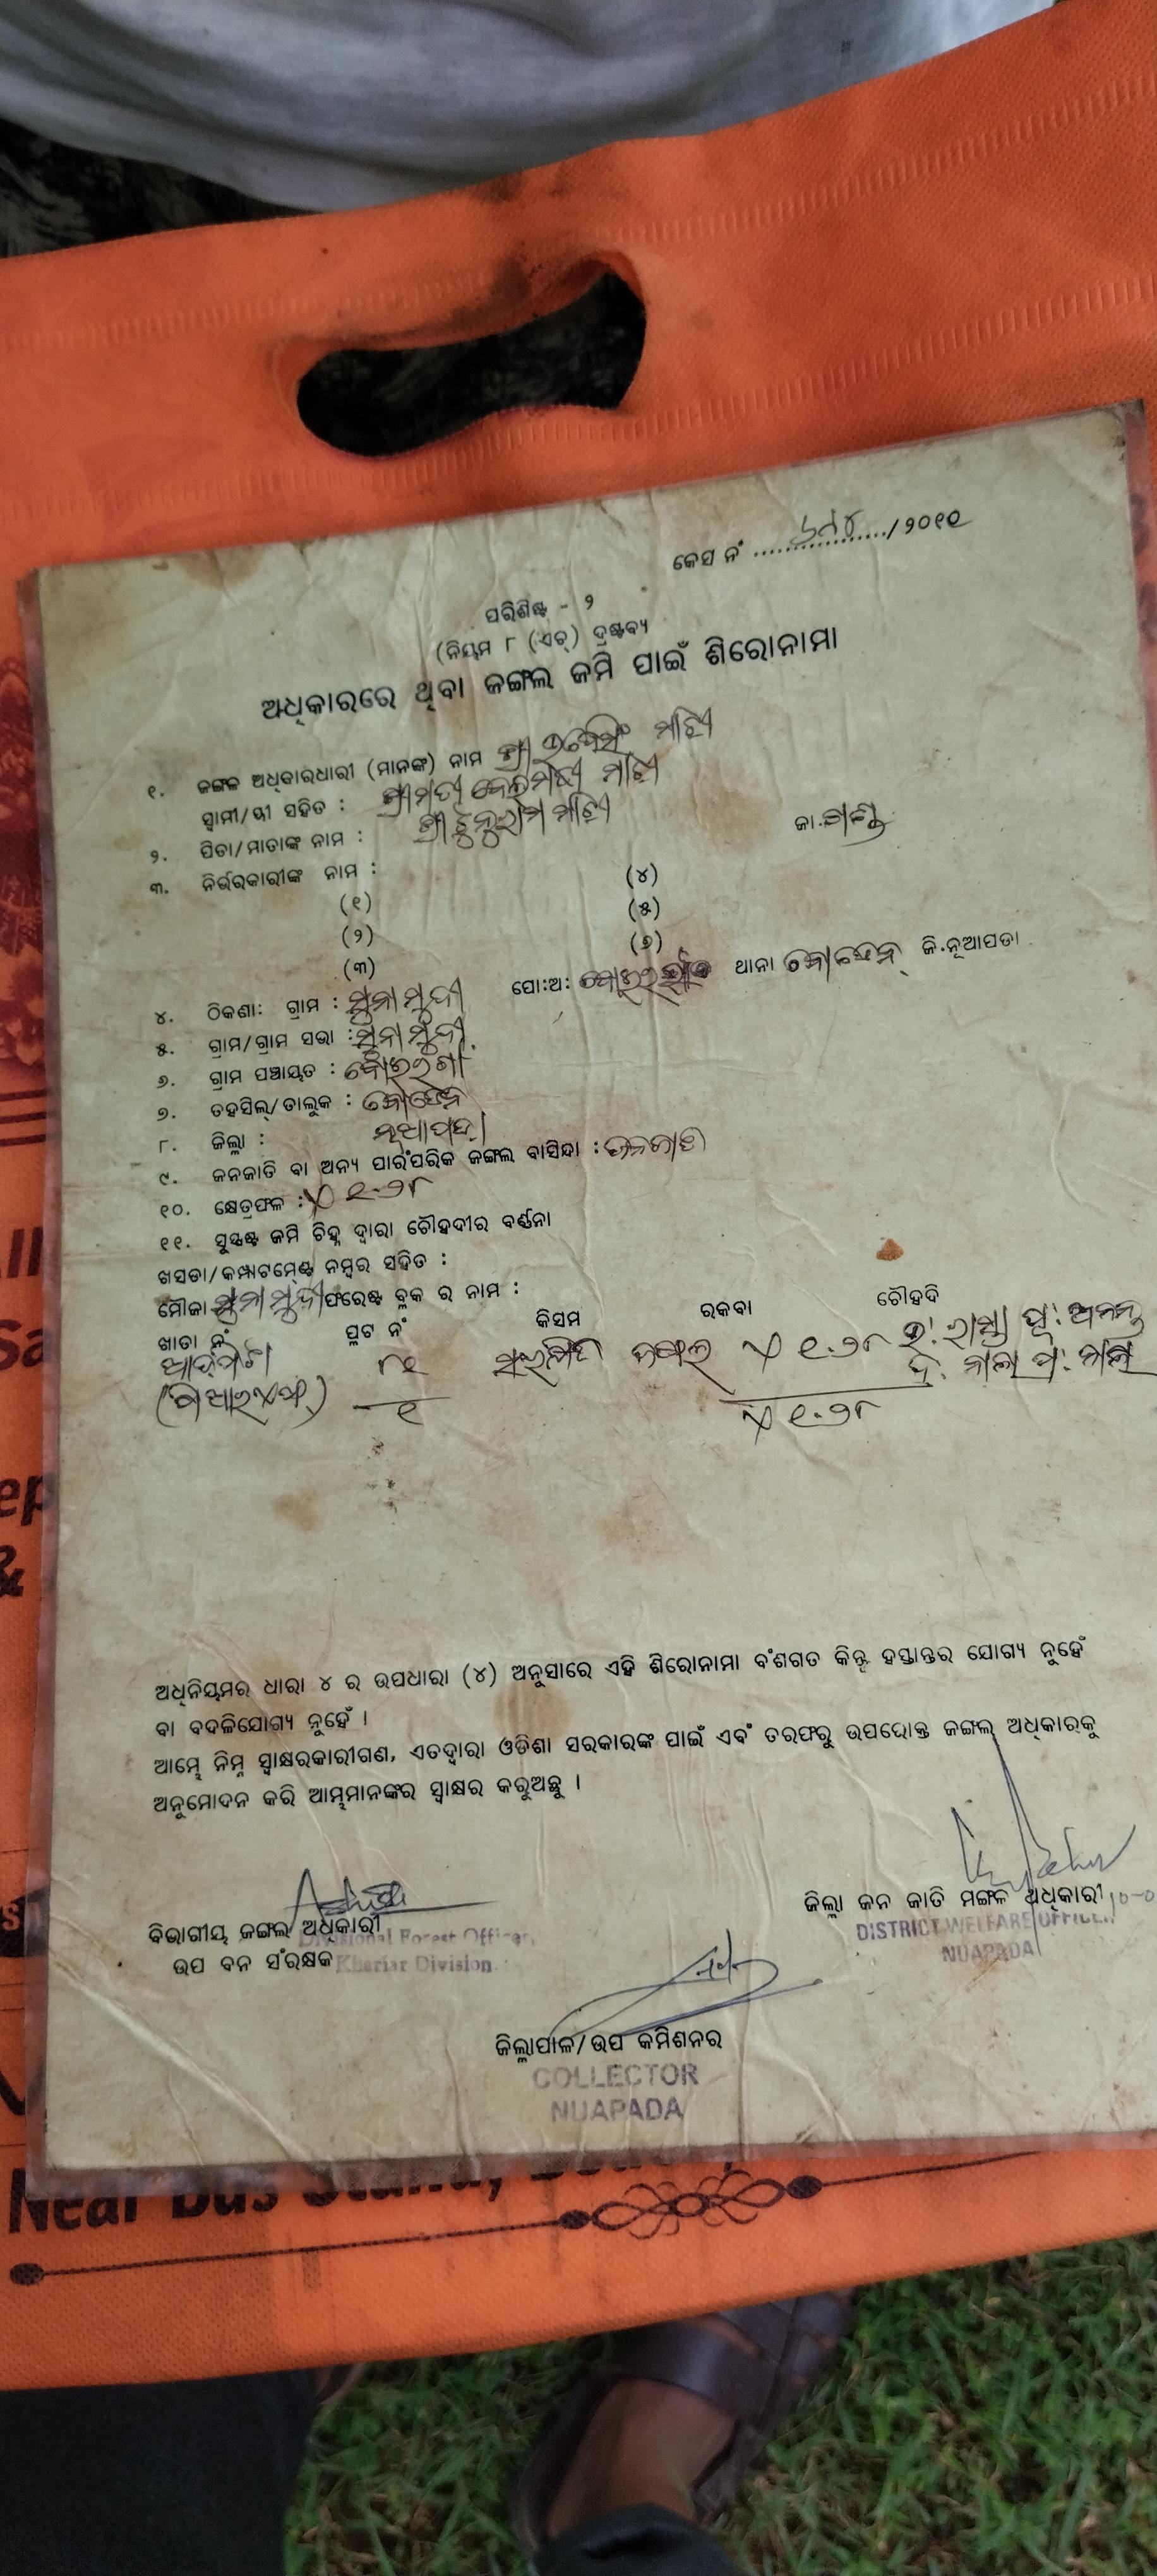 କେସ ନଂ ................/୨୦୧୧
ପରିଶିଷ୍ଟ - ୨
(ନିୟମ ୮ (ଏଚ୍) ଦ୍ରଷ୍ଟବ୍ୟ
ଅଧିକାରରେ ଥିବା ଜଙ୍ଗଲ ଜମି ପାଇଁ ଶିରୋନାମା
୧. ଜଙ୍ଗଳ ଅଧିକାରଧାରୀ (ମାନଙ୍କ) ନାମ ଶ୍ରୀ ମାଝି
ସ୍ୱାମୀ/ସ୍ତ୍ରୀ ସହିତ : ଶ୍ରୀମତୀ ମାଝି
୨. ପିତା/ମାତାଙ୍କ ନାମ : ଶ୍ରୀ ମାଝି ଜା. ଗଣ୍ଡ
୩. ନିର୍ଭରକାରୀଙ୍କ ନାମ :
(୧) (୪)
(୨) (୫)
(୩) (୬)
୪. ଠିକଣା: ଗ୍ରାମ : ସୁନାମୁଦୀ ପୋ:ଅ: ଥାନା ବୋଡେନ୍ ଜି.ନୂଆପଡା
୫. ଗ୍ରାମ/ଗ୍ରାମ ସଭା : ସୁନାମୁଦୀ
୬. ଗ୍ରାମ ପଞ୍ଚାୟତ :
୭. ତହସିଲ୍/ତାଲୁକ : ବୋଡେନ
୮. ଜିଲ୍ଲା : ନୂଆପଡା
୯. ଜନଜାତି ବା ଅନ୍ୟ ପାରଂପରିକ ଜଙ୍ଗଲ ବାସିନ୍ଦା : ଜନଜାତି
୧୦. କ୍ଷେତ୍ରଫଳ : ୧.୨୮
୧୧. ସୁସ୍ପଷ୍ଟ ଜମି ଚିହ୍ନ ଦ୍ୱାରା ଚୌହଦୀର ବର୍ଣ୍ଣନା
ଖସଡା/କମ୍ପାଟମେଣ୍ଟ ନମ୍ବର ସହିତ :
ମୌଜା ସୁନାମୁଦୀ ଫରେଷ୍ଟ ବ୍ଲକ ର ନାମ :
ଖାତା ନଂ ପ୍ଲଟ ନଂ କିସମ ରକବା ଚୌହଦି
୮୧ ଜଙ୍ଗଲ ୧.୨୮ ଉ: ରାସ୍ତା ପୂ: ଅନନ୍ତ
ଦ: ନାଲା ପ: ନାଲା
୧ ୧.୨୮
ଅଧିନିୟମର ଧାରା ୪ ର ଉପଧାରା (୪) ଅନୁସାରେ ଏହି ଶିରୋନାମା ବଂଶଗତ କିନ୍ତୁ ହସ୍ତାନ୍ତର ଯୋଗ୍ୟ ନୁହେଁ
ବା ବଦଳିଯୋଗ୍ୟ ନୁହେଁ ।
ଆମ୍ଭେ ନିମ୍ନ ସ୍ୱାକ୍ଷରକାରୀଗଣ, ଏତଦ୍ୱାରା ଓଡିଶା ସରକାରଙ୍କ ପାଇଁ ଏବଂ ତରଫରୁ ଉପରୋକ୍ତ ଜଙ୍ଗଲ୍ ଅଧିକାରକୁ
ଅନୁମୋଦନ କରି ଆମ୍ଭମାନଙ୍କର ସ୍ୱାକ୍ଷର କରୁଅଛୁ ।
ବିଭାଗୀୟ ଜଙ୍ଗଲ ଅଧିକାରୀ
Divisional Forest Officer,
ଉପ ବନ ସଂରକ୍ଷକ
Khariar Division
ଜିଲ୍ଲା ଜନ ଜାତି ମଙ୍ଗଳ ଅଧିକାରୀ
DISTRICT WELFARE OFFICER
NUAPADA
ଜିଲ୍ଲାପାଳ/ଉପ କମିଶନର
COLLECTOR
NUAPADA
Near Bus Stand,